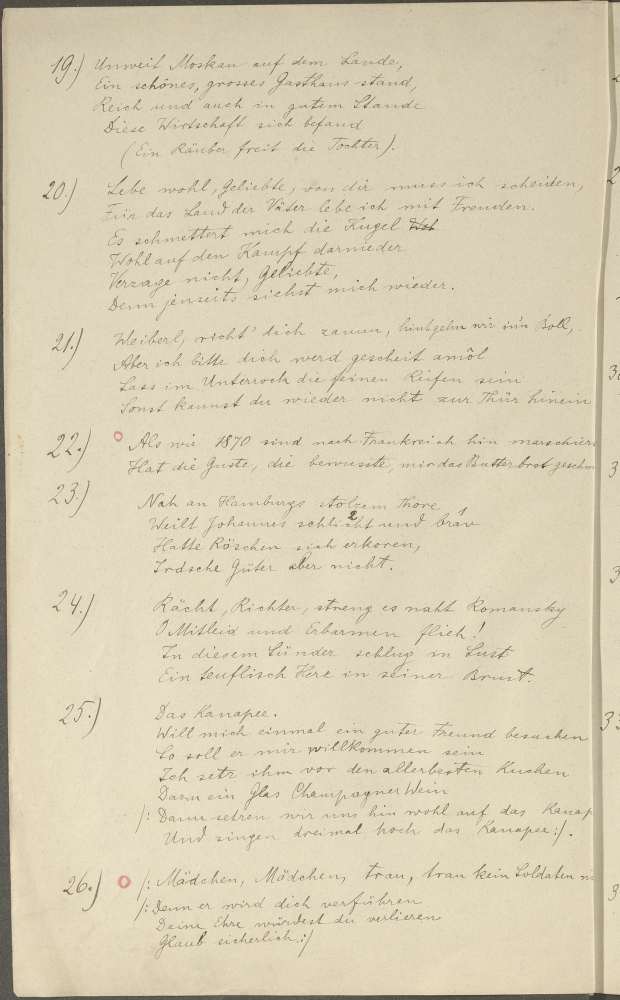 19.) Unweit Moskau auf dem Lande,
Ein schönes, grosses Gasthaus stand,
Reich und auch in gutem Stande
Diese Wirtschaft sich befand
(Ein Räuber freit die Tochter).
20.) Lebe wohl, Geliebte, von dir muss ich scheiden,
Für das Land der Väter lebe ich mit Freuden.
Es schmettert mich die Kugel
Wohl auf den Kampf darnieder
Verzage nicht, Geliebte,
Denn jenseits siehst mich wieder.
21.) Weiberl, richt' dich zamm, hint gehn wir in'n Boll,
Aber ich bitte dich werd gescheit amôl
Lass im Unterrock die feinen Reifen sein
Sonst kannst du wieder nicht zur Thür hinein
22.) Als wir 1870 sind nach Frankreich hin marschiert
Hat die Guste, die bewusste, mir das Butterbrot geschm
23.) Nah an Hamburgs stolzem Thore
Weilt Johannes schlicht und brav
Hatte Röschen sich erkoren,
Irdsche Güter aber nicht.
24.) Rächt, Richter, streng es naht Romansky
O Mitleid und Erbarmen flieh!
In diesem Sünder schlug in Lust
Ein teuflisch Herz in seiner Brust.
25.) Das Kanapee.
Will mich einmal ein guter Freund besuchen
So soll er mir willkommen sein
Ich setz ihm vor den allerbesten Kuchen
Dazu ein Glas Champagner Wein
/: Dann setzen wir uns hin wohl auf das Kanap
Und singen dreimal hoch das Kanapee :/.
26.) /: Mädchen, Mädchen, trau, trau kein Soldaten ni
/: Denn er wird dich verführen
Deine Ehre würdest du verlieren
Glaub sicherlich :/